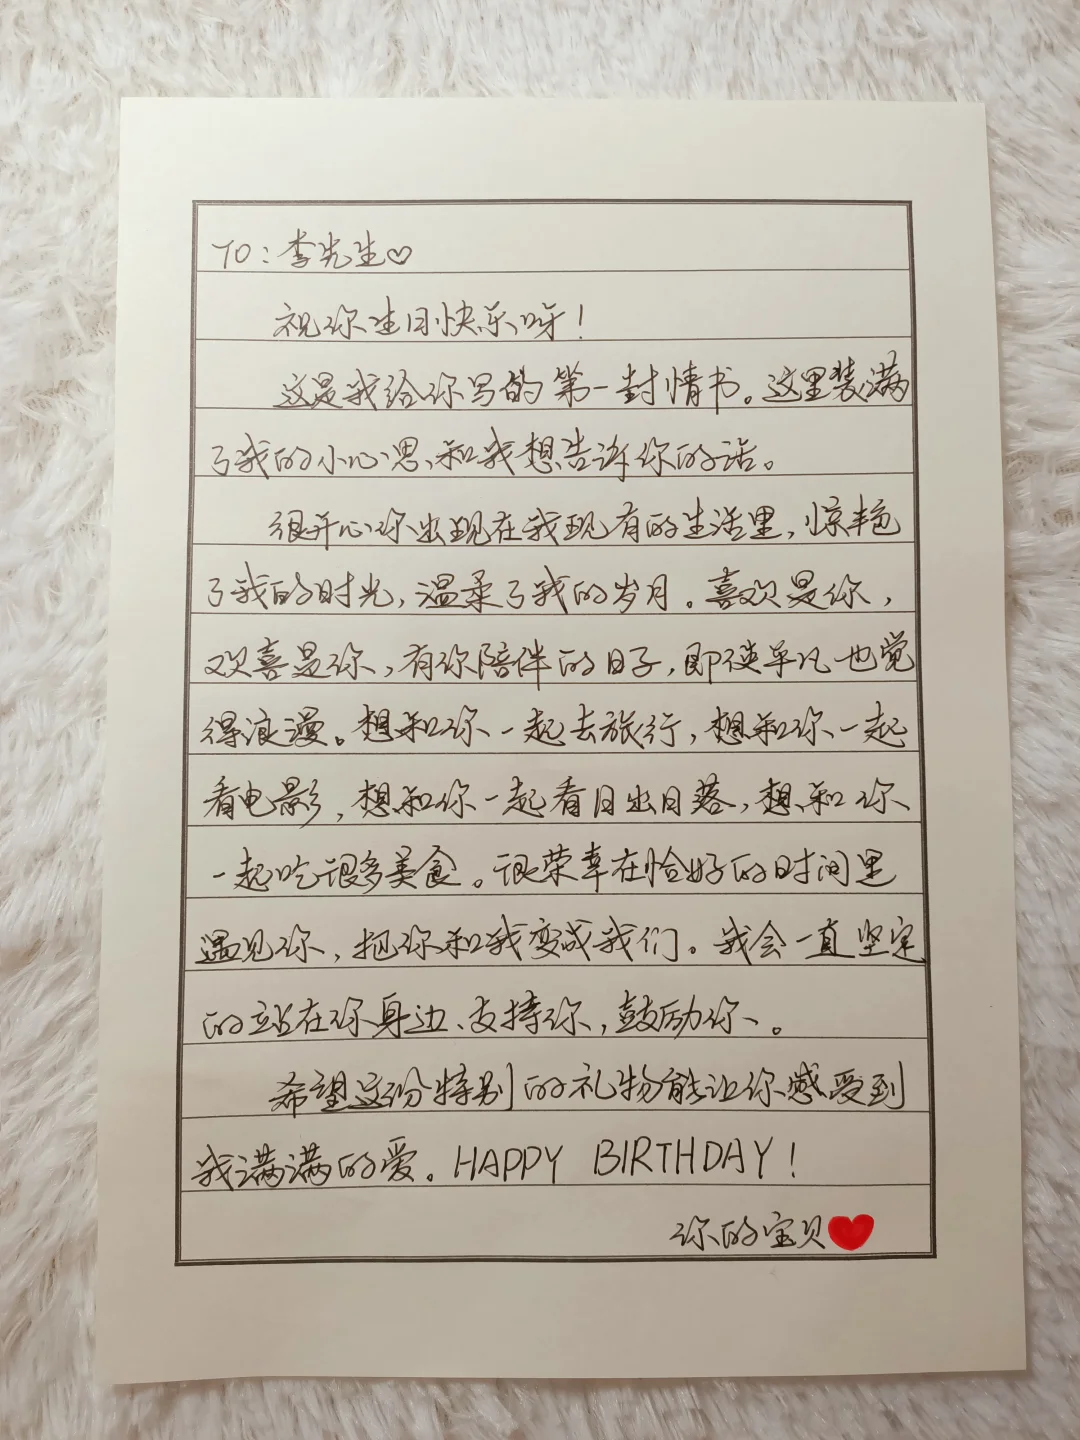 TO：李先生♡
祝你生日快乐呀！
这是我给你写的第一封情书。这里装满
了我的小心思、和我想告诉你的话。
很开心你出现在我现有的生活里，惊艳
了我的时光，温柔了我的岁月。喜欢是你，
欢喜是你，有你陪伴的日子，即使平凡也觉
得浪漫。想和你一起去旅行，想和你一起
看电影，想和你一起看日出日落，想和你
一起吃很多美食。很荣幸在恰好的时间里
遇见你，把你和我变成我们。我会一直坚定
的站在你身边、支持你，鼓励你、。
希望这份特别的礼物能让你感受到
我满满的爱。HAPPY BIRTHDAY！
你的宝贝❤